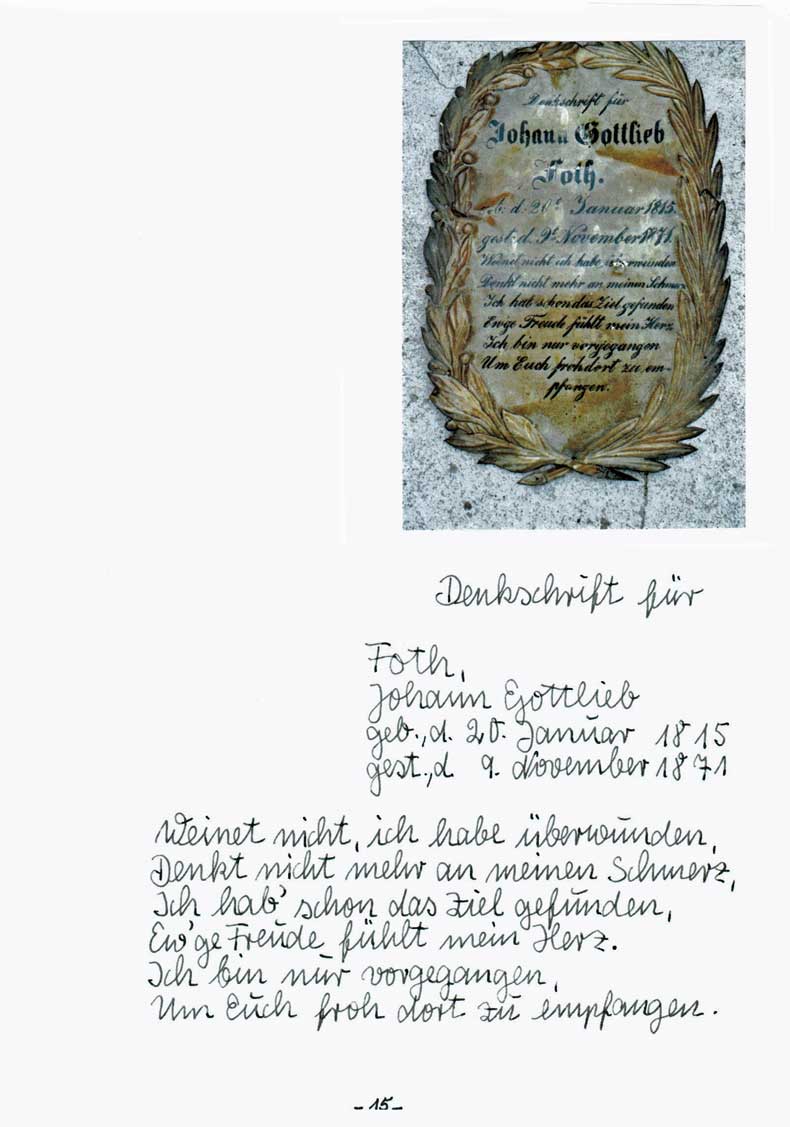 Denkschrift für
Johann Gottlieb
Foth.
geb: d. 20t Januar 1815.
gest: d. 9t November 1871.
Weinet nicht ich habe überwunden
Denkt nicht mehr an meinen Schmerz
Ich hab schon das Ziel gefunden
Ewge Freude fühlt mein Herz
Ich bin nur vorgegangen
Um Euch froh dort zu em-
pfangen.
Denkschrift für
Foth,
Johann Gottlieb
geb., d. 20. Januar 1815
gest., d. 9. November 1871
Weinet nicht, ich habe überwunden,
Denkt nicht mehr an meinen Schmerz,
Ich hab' schon das Ziel gefunden,
Ew'ge Freude fühlt mein Herz.
Ich bin nur vorgegangen,
Um Euch froh dort zu empfangen.
- 15 -